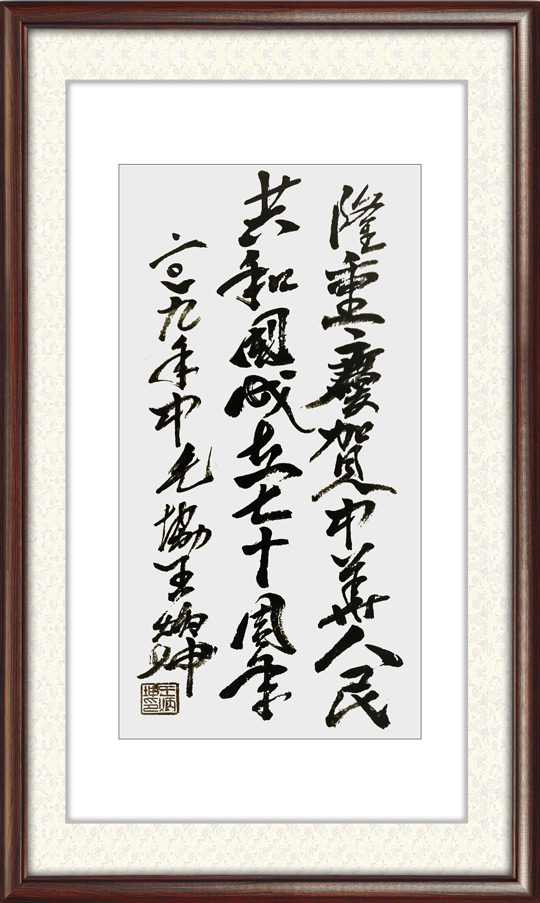 隆重慶賀中華人民
共和國成立七十周年
二〇一九年中毛協王炳坤
王炳坤印